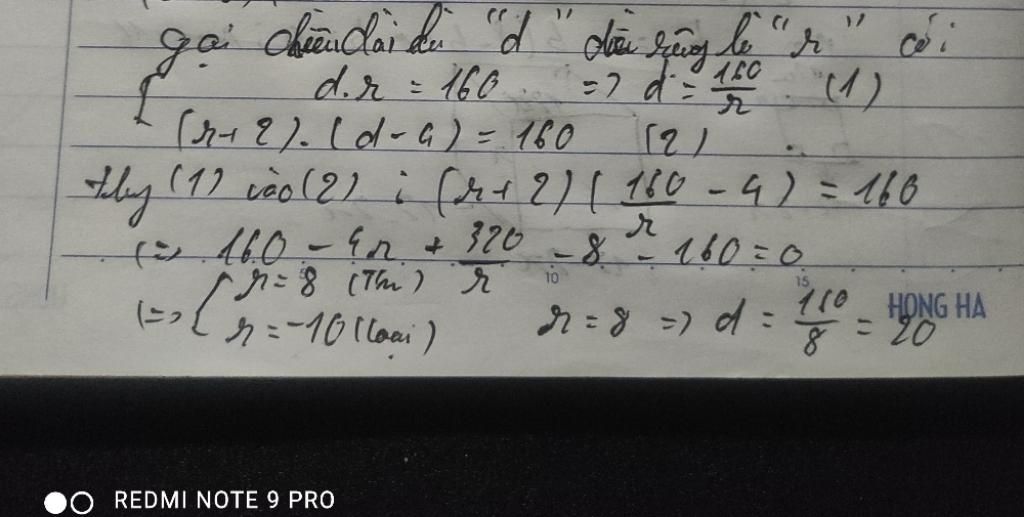 gọi chiều dài là "d" chiều rộng là "r" có:
{ d.r = 160 => d = 160/r (1)
(r+2).(d-4) = 160 (2)
thay (1) vào (2): (r+2)(160/r - 4) = 160
(=> 160 - 4r + 320/r - 8 - 160 = 0
10 15
(=> { r = 8 (Tm)
r = -10 (loại) r = 8 => d = 160/8 = 20
HONG HA
REDMI NOTE 9 PRO